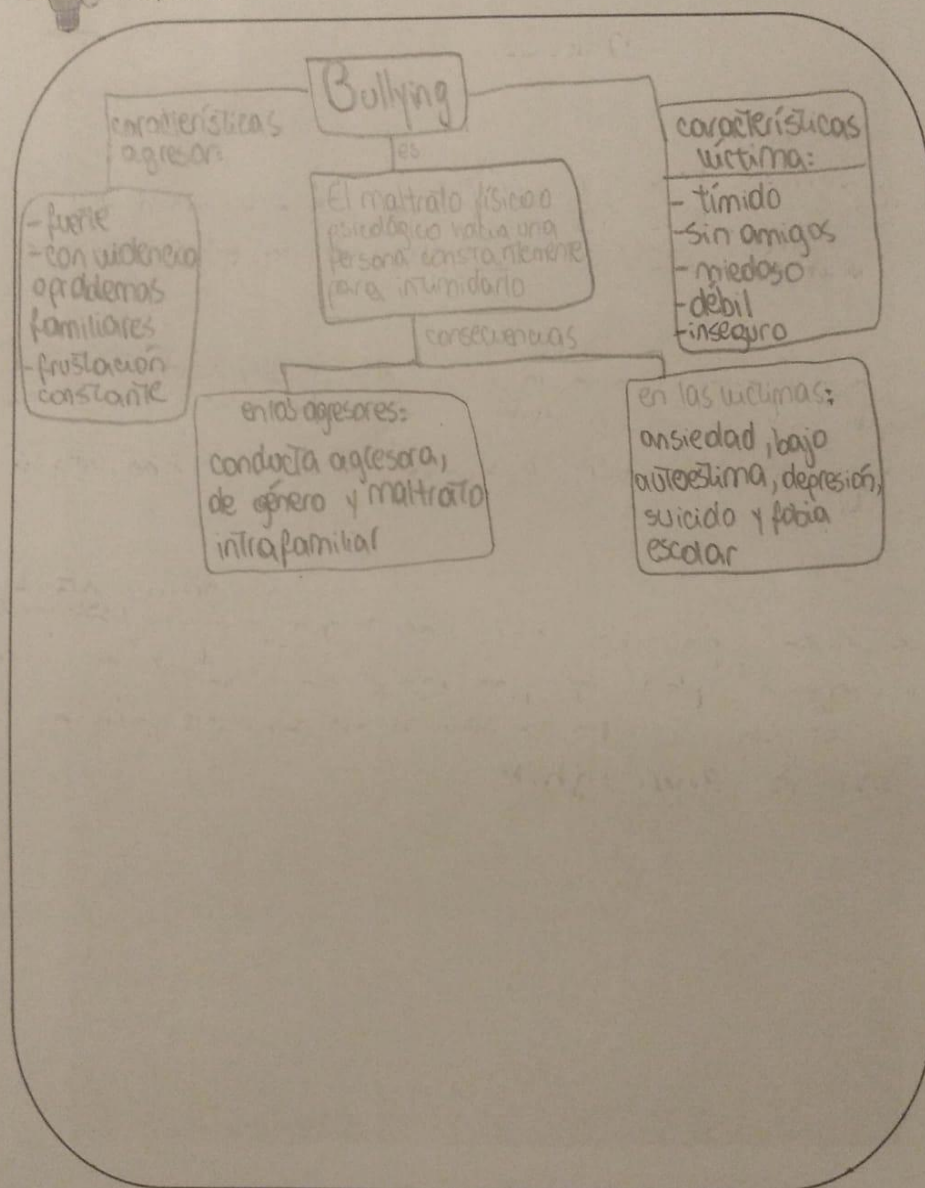 Bullying
características
agresor:
- fuerte
- con violencia
o problemas
familiares
- frustación
constante
es
El maltrato físico o
psicológico hacia una
persona constantemente
para intimidarlo
características
víctima:
- tímido
- sin amigos
- miedoso
- débil
- inseguro
consecuencias
en los agresores:
conducta agresora,
de género y maltrato
intrafamiliar
en las víctimas:
ansiedad, bajo
autoestima, depresión,
suicido y fobia
escolar